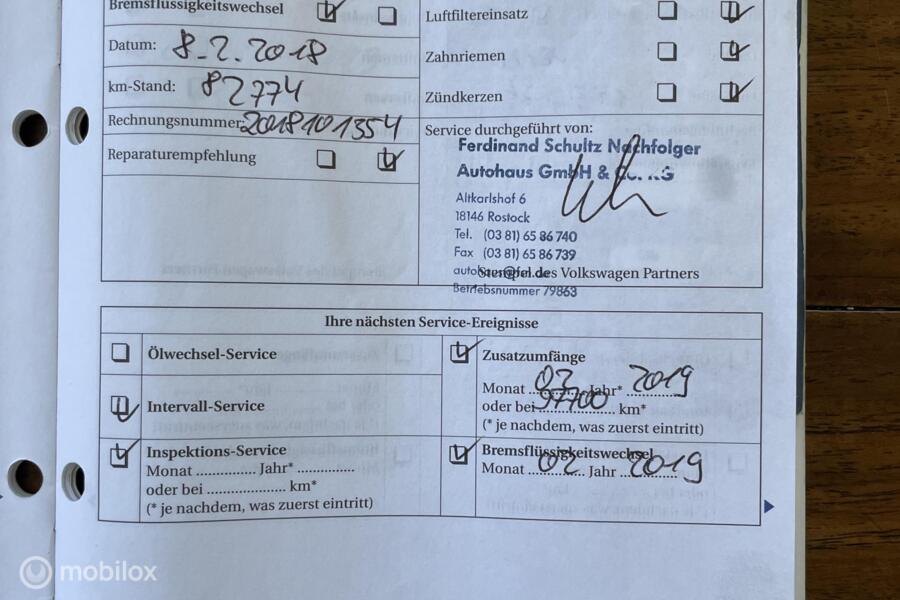 Bremsflüssigkeitswechsel
Datum: 8.2.2018
km-Stand: 82774
Rechnungsnummer 2018101354
Reparaturempfehlung
Luftfiltereinsatz
Zahnriemen
Zündkerzen
Service durchgeführt von:
Ferdinand Schultz Nachfolger
Autohaus GmbH & Co. KG
Altkarlshof 6
18146 Rostock
Tel. (03 81) 65 86 740
Fax (03 81) 65 86 739
Stempel des Volkswagen Partners
Betriebsnummer 79863
Ihre nächsten Service-Ereignisse
Ölwechsel-Service
Intervall-Service
Inspektions-Service
Monat ............... Jahr* ..............
oder bei .................... km*
(* je nachdem, was zuerst eintritt)
Zusatzumfänge
Monat 02 Jahr* 2019
oder bei 97700 km*
(* je nachdem, was zuerst eintritt)
Bremsflüssigkeitswechsel
Monat 02 Jahr 2019
mobilox